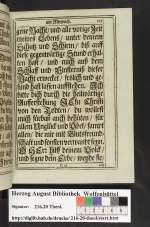 am Mitwoch.
gene Nacht/ und alle vorige Zeit
meines Lebens/ unter deinem
Schutz und Schirm/ biß auff
diese gegenwärtige Stunde erhal-
ten hast/ und mich auß dem
Schlaff und Finsternüß dieser
Nacht erwecket/ frölich und ge-
sund hast lassen aufstehen. Ich
bitte dich durch die heilwärtige
Aufferstehung JEsu Christi
von den Todten/ du wollest
mich fürbaß auch behüten/ für
allem Unglück und Übel/ und
die mir mit Blutsfreund-
schafft und sonsten verwandt seyn.
O HErr hilff deinem Volck
und segne dein Erbe/ weyde sie/
Herzog August Bibliothek Wolfenbüttel
Signatur: 216.29 Theol.
http://diglib.hab.de/drucke/216-29-theol/start.htm